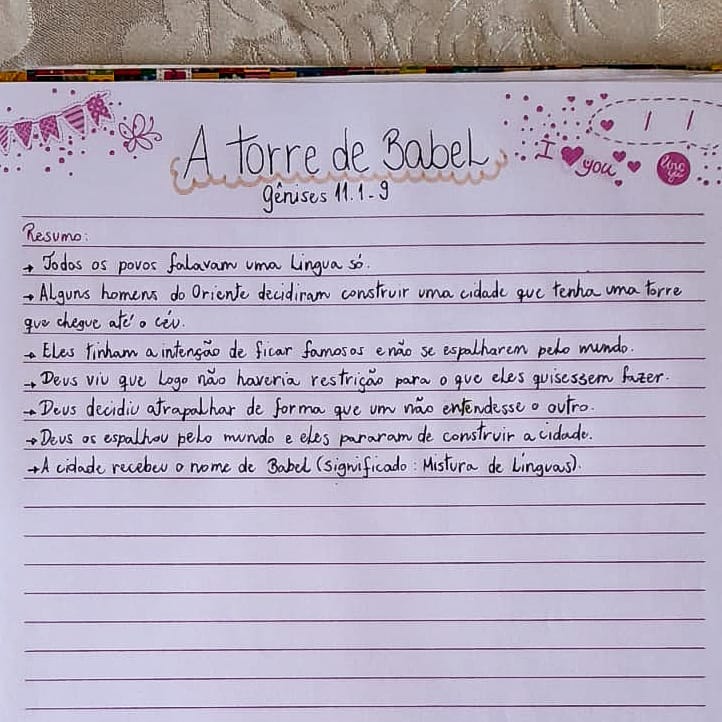 I ♥ you
A Torre de Babel
Gênises 11.1-9
Resumo:
→ Todos os povos falavam uma Língua só.
→ Alguns homens do Oriente decidiram construir uma cidade que tenha uma torre
que chegue até o céu.
→ Eles tinham a intenção de ficar famosos e não se espalharem pelo mundo.
→ Deus viu que Logo não haveria restrição para o que eles quisessem fazer.
→ Deus decidiu atrapalhar de forma que um não entendesse o outro.
→ Deus os espalhou pelo mundo e eles pararam de construir a cidade.
→ A cidade recebeu o nome de Babel (Significado: Mistura de Línguas).